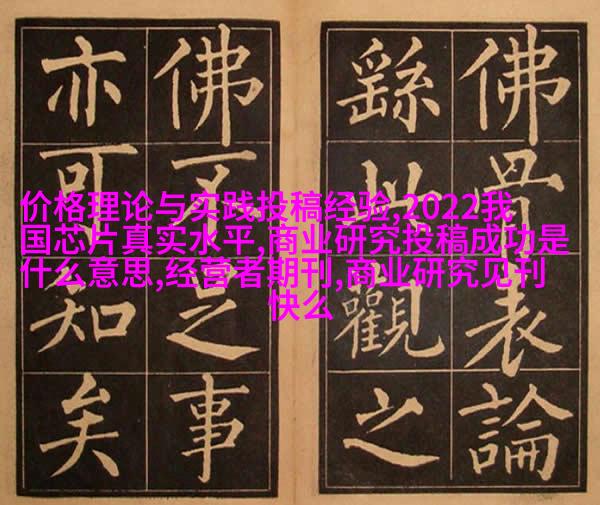 价格理论与实践投稿经验,2022我
国芯片真实水平,商业研究投稿成功是
什么意思,经营者期刊,商业研究见刊
快么
佛骨表論
繇此觀之
佛不足事
亦可知矣